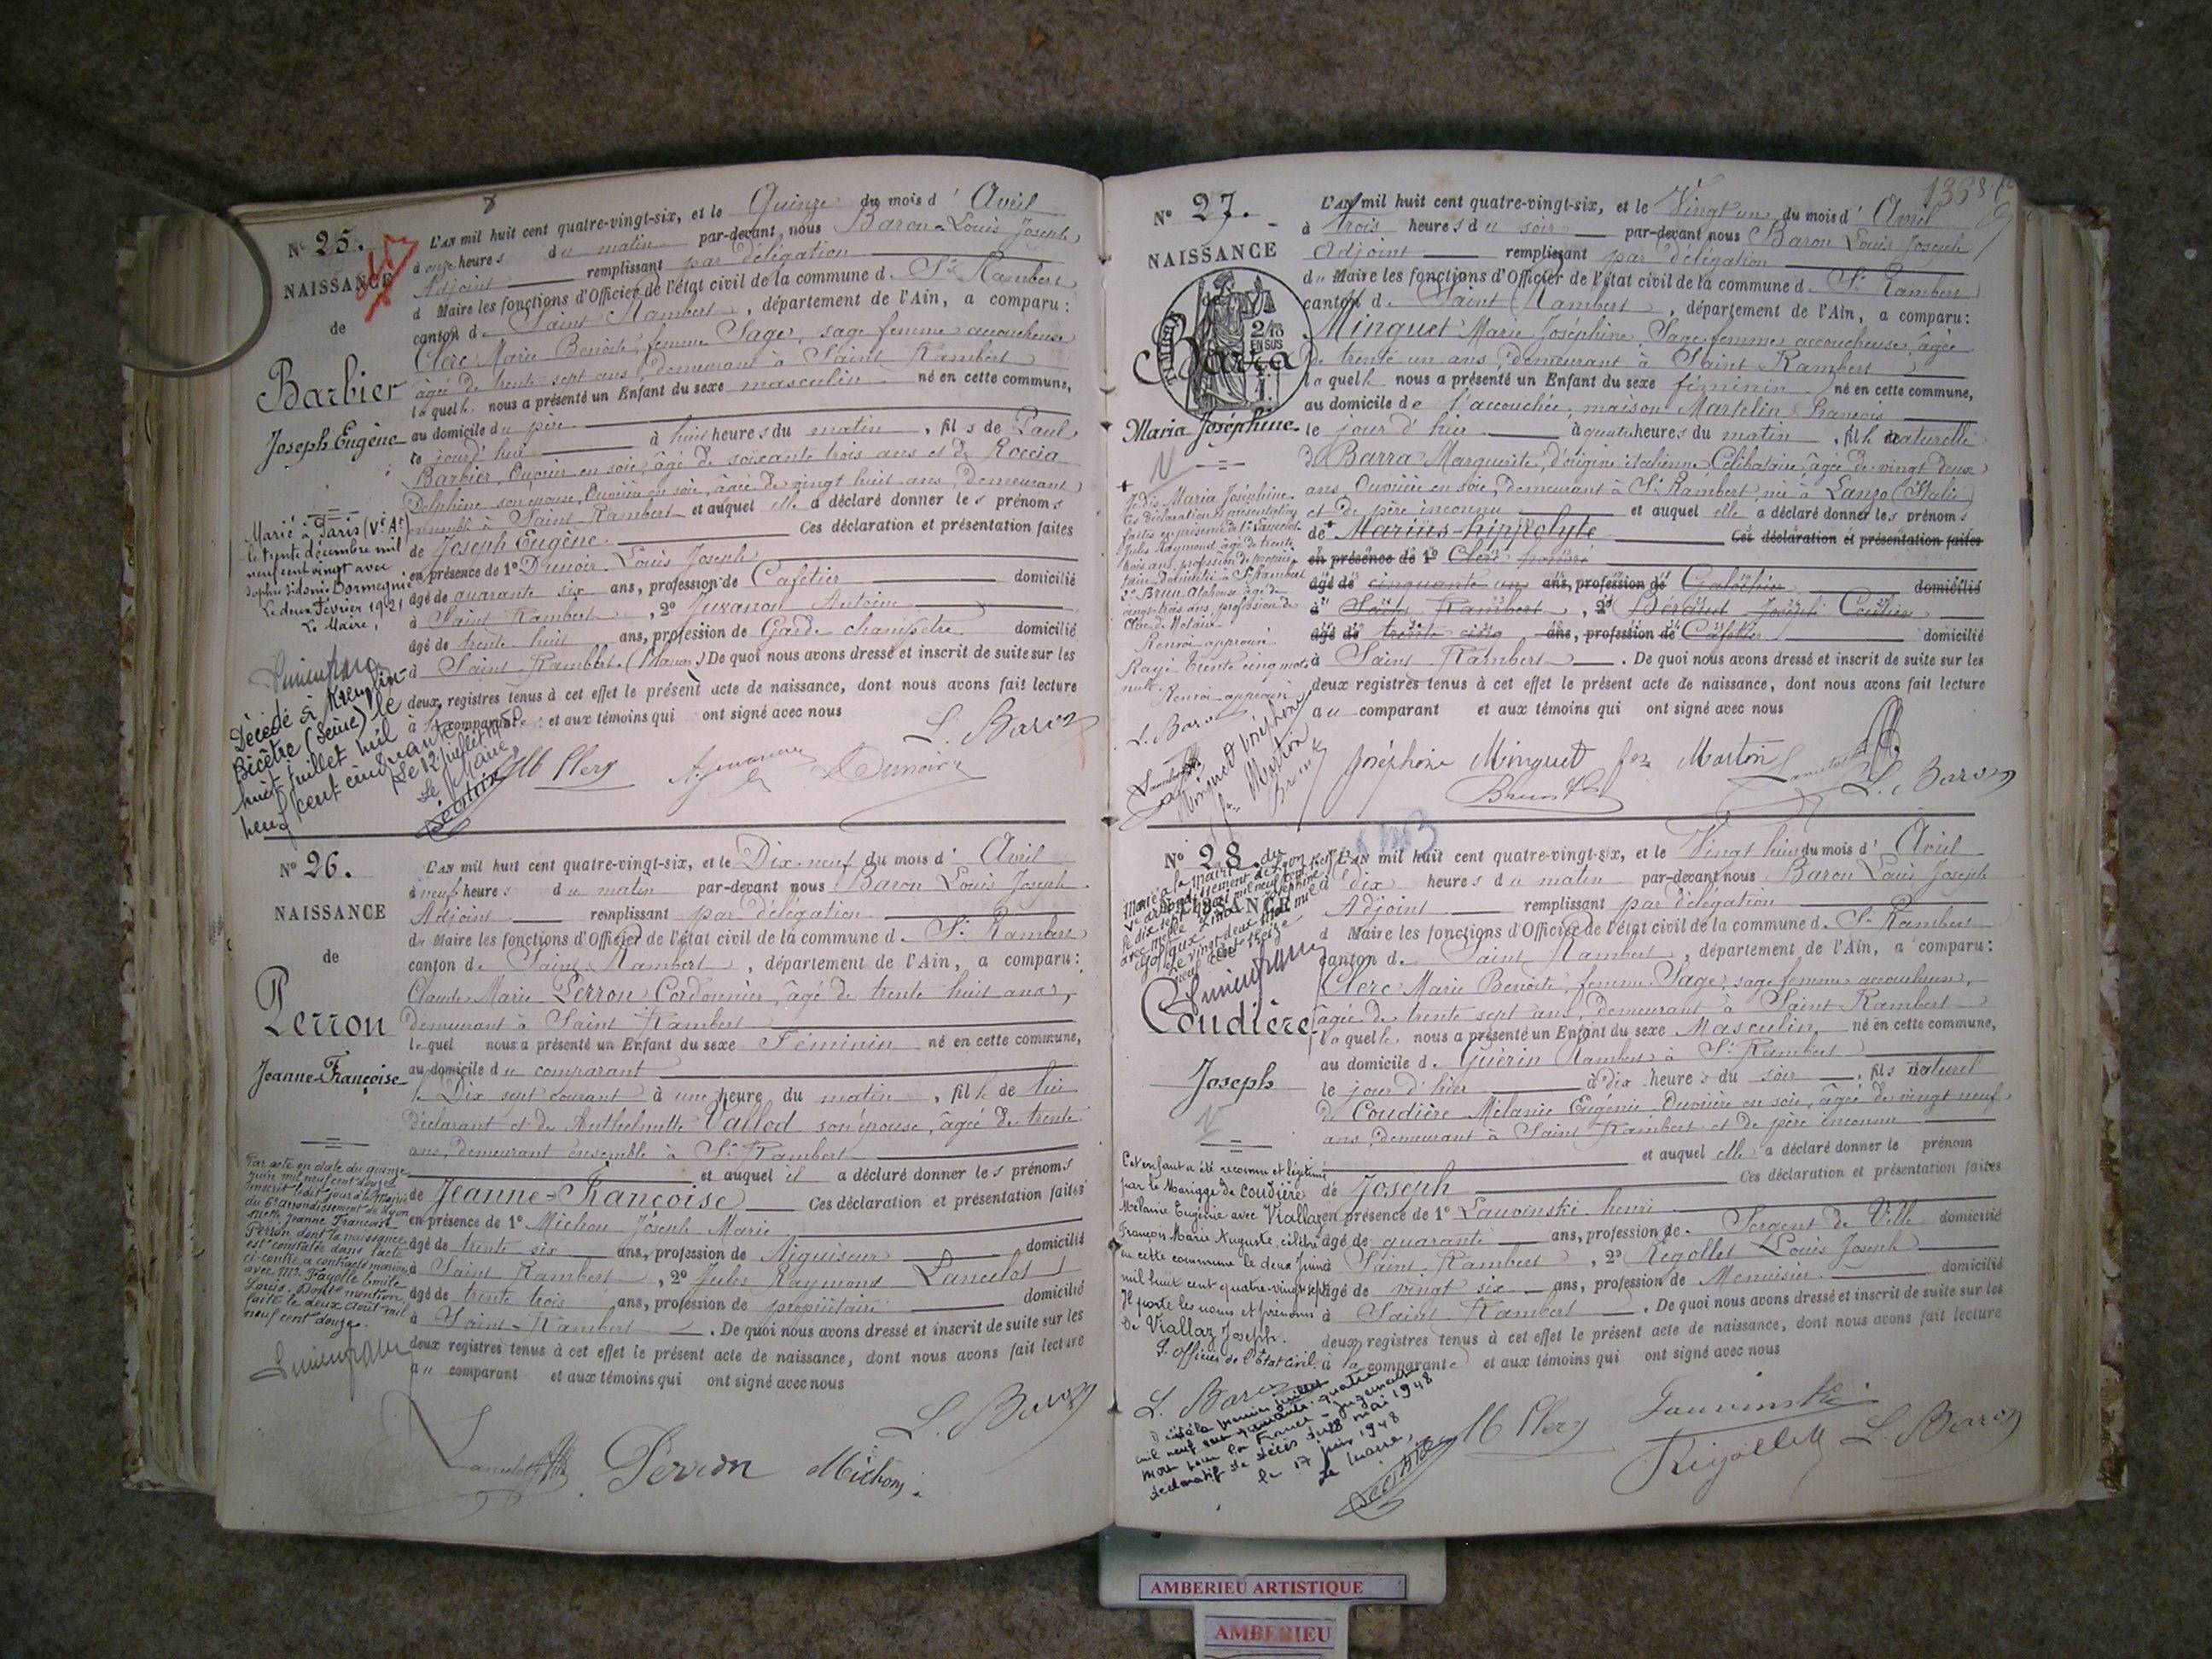 N° 25.
NAISSANCE
de
Barbier
Joseph Eugène
L'AN mil huit cent quatre-vingt-six, et le Quinze du mois d'Avril
à onze heures du matin par-devant nous Baron Louis Joseph
Adjoint remplissant par délégation
d Maire les fonctions d'Officier de l'état civil de la commune d. St Rambert
canton d. Saint Rambert, département de l'Ain, a comparu:
Clerc Marie Benoite, femme Sage, sage femme accoucheuse
âgée de trente-sept ans demeurant à Saint Rambert
laquelle nous a présenté un Enfant du sexe masculin né en cette commune,
au domicile du père
le jour d'hui à huit heures du matin, fils de Paul
Barbier, Ouvrier en soie, âgé de soixante trois ans et de Roccia
Delphine son épouse, Ouvrière en soie, âgée de vingt huit ans, demeurant
ensemble à Saint-Rambert et auquel elle a déclaré donner les prénoms
de Joseph Eugène. Ces déclaration et présentation faites
en présence de 1° Dunoir Louis Joseph
âgé de quarante six ans, profession de Cafetier domicilié
à Saint Rambert, 2° Juvanon Antoine
âgé de trente huit ans, profession de Garde champêtre domicilié
à Saint-Rambert. De quoi nous avons dressé et inscrit de suite sur les
deux registres tenus à cet effet le présent acte de naissance, dont nous avons fait lecture
à la comparante et aux témoins qui ont signé avec nous
L. Baron
Marié à Paris (Ve Art)
le trente décembre mil
neuf cent vingt avec
Sophie Sidonie Dormegnie
Le deux Février 1921
Le Maire,
Décédé à Kremlin-
Bicêtre (Seine) le
huit juillet mil
neuf cent cinquante
Le 12 juillet 1950
Le Maire
N° 26.
NAISSANCE
de
Perron
Jeanne-Françoise
L'AN mil huit cent quatre-vingt-six, et le Dix-neuf du mois d'Avril
à neuf heures du matin par-devant nous Baron Louis Joseph
Adjoint remplissant par délégation
du Maire les fonctions d'Officier de l'état civil de la commune d. St Rambert
canton d. Saint-Rambert, département de l'Ain, a comparu:
Claude Marie Perron Cordonnier, âgé de trente huit ans,
demeurant à Saint Rambert
lequel nous a présenté un Enfant du sexe Féminin né en cette commune,
au domicile du comparant
le Dix sept courant à une heure du matin, fille de lui
déclarant et de Anthelmette Vallod son épouse, âgée de trente
ans, demeurant ensemble à St Rambert
et auquel il a déclaré donner les prénoms
de Jeanne-Françoise Ces déclaration et présentation faites
en présence de 1° Michon Joseph Marie
âgé de trente six ans, profession de Aiguiseur domicilié
à Saint Rambert, 2° Jules Raymond Lancelot
âgé de trente trois ans, profession de propriétaire domicilié
à Saint-Rambert. De quoi nous avons dressé et inscrit de suite sur les
deux registres tenus à cet effet le présent acte de naissance, dont nous avons fait lecture
au comparant et aux témoins qui ont signé avec nous
L. Baron
Lancelot Perron Michon
Par acte en date du quinze
juin mil neuf cent douze
inscrit ledit jour à la Mairie
du 6e arrondissement de Lyon
Melle Jeanne Françoise
Perron, dont la naissance
est constatée dans l'acte
ci-contre a contracté mariage
avec Mr. Fayolle Emile
Louis. Dont mention
faite le deux Août mil
neuf cent douze.
N° 27.
NAISSANCE
de
2/10
EN SUS
Barra
Maria Joséphine
L'AN mil huit cent quatre-vingt-six, et le Vingt un du mois d'Avril
à trois heures du soir par-devant nous Baron Louis Joseph
Adjoint remplissant par délégation
du Maire les fonctions d'Officier de l'état civil de la commune d. St Rambert
canton d. Saint Rambert, département de l'Ain, a comparu:
Minguet Marie Joséphine, Sage femme accoucheuse, âgée
de trente un ans demeurant à Saint Rambert
laquelle nous a présenté un Enfant du sexe féminin né en cette commune,
au domicile de l'accouchée, maison Martelin François
le jour d'hier à quatre heures du matin, fille naturelle
de Barra Marguerite, d'origine italienne, Célibataire, âgée de vingt deux
ans, Ouvrière en soie, demeurant à St Rambert, née à Lanzo (Italie)
et de père inconnu et auquel elle a déclaré donner les prénoms
de + Marius-hippolyte Ces déclaration et présentation faites
en présence de 1° Clerc
âgé de cinquante un ans, profession de domicilié
à Saint Rambert, 2° Béraud Joseph
âgé de trente cinq ans, profession de Cafetier domicilié
à Saint Rambert. De quoi nous avons dressé et inscrit de suite sur les
deux registres tenus à cet effet le présent acte de naissance, dont nous avons fait lecture
au comparant et aux témoins qui ont signé avec nous
Joséphine Minguet fme Marton
L. Baron
+
Je dis Maria Joséphine.
Ces déclaration et présentation
faites en présence de 1° Lancelot
Jules Raymond âgé de trente
trois ans, profession de propriétaire
domicilié à St Rambert
2° Brun Alphonse âgé de
vingt trois ans, profession de
Clerc de Notaire
Renvoi approuvé
Rayé trente cinq mots
nuls.
Renvoi approuvé
L. Baron
Minguet Joséphine
fme Marton
Brun
N° 28.
NAISSANCE
Coudière
Joseph
L'AN mil huit cent quatre-vingt-six, et le Vingt huit du mois d'Avril
à dix heures du matin par-devant nous Baron Louis Joseph
Adjoint remplissant par délégation
d Maire les fonctions d'Officier de l'état civil de la commune d. St Rambert
canton d. Saint Rambert, département de l'Ain, a comparu:
Clerc Marie Benoite, femme Sage, sage femme accoucheuse,
âgée de trente sept ans, demeurant à Saint-Rambert
laquelle nous a présenté un Enfant du sexe Masculin né en cette commune,
au domicile d. Guérin Rambert à St Rambert
le jour d'hier à dix heures du soir, fils naturel
de Coudière Mélanie Eugénie Ouvrière en soie, âgée de vingt neuf
ans, demeurant à Saint-Rambert et de père inconnu
et auquel elle a déclaré donner le prénom
de Joseph Ces déclaration et présentation faites
en présence de 1° Lauvinski henri
âgé de quarante ans, profession de Sergent de Ville domicilié
à Saint Rambert, 2° Rigollet Louis Joseph
âgé de vingt six ans, profession de Menuisier domicilié
à Saint Rambert. De quoi nous avons dressé et inscrit de suite sur les
deux registres tenus à cet effet le présent acte de naissance, dont nous avons fait lecture
à la comparante et aux témoins qui ont signé avec nous
Lauvinski
Rigollet L. Baron
Cet enfant a été reconnu et légitimé
par le Mariage de Coudière
Mélanie Eugénie avec Viallaz
François Marie Auguste, célébré
en cette commune le deux Juin
mil huit cent quatre-vingt sept
Il porte les noms et prénoms
De Viallaz Joseph.
L'officier de l'état civil
L. Baron
Décédé le premier juillet
mil neuf cent quarante-quatre
Mort pour la France - jugement
déclaratif de décès du 18 mai 1948
le 17 juin 1948
Le Maire,
AMBERIEU ARTISTIQUE
AMBERIEU